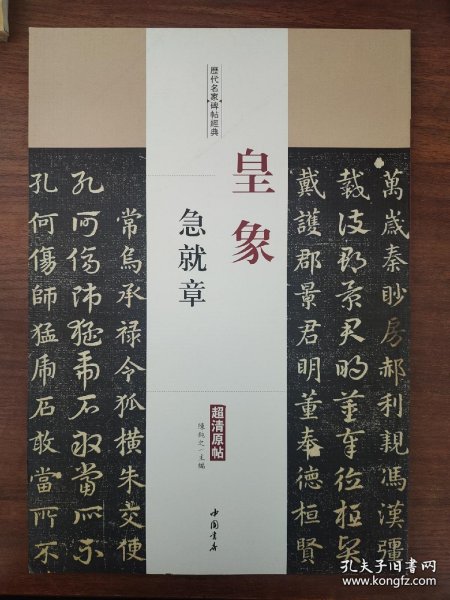 萬歲秦眇房郝利親馮漢彊
戴護郡景君明董奉德桓賢
戴護郡景君明董奉德桓賢
歷代名家碑帖經典
皇象
急就章
超清原帖
陳純之/主編
中國書店
常烏承祿令狐橫朱交便
孔何傷師猛虎石敢當所不
孔何傷師猛虎石敢當所不
孔夫子旧书网
www.kongfz.com